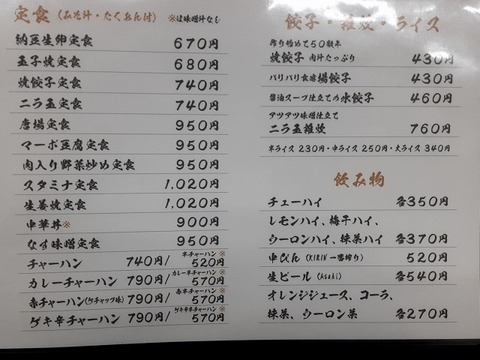 定食(みそ汁・たくあん付) ※は味噌汁なし
納豆生卵定食 670円
玉子焼定食 680円
焼餃子定食 740円
ニラ玉定食 740円
唐揚定食 950円
マーボ豆腐定食 950円
肉入り野菜炒め定食 950円
スタミナ定食 1,020円
生姜焼定食 1,020円
中華丼※ 900円
なす味噌定食 950円
チャーハン 740円/半チャーハン※520円
カレーチャーハン 790円/カレー半チャーハン※570円
赤チャーハン(ケチャップ味) 790円/赤半チャーハン※570円
ゲキ辛チャーハン 790円/ゲキ辛半チャーハン※570円
餃子・雑炊・ライス
作り始めて50数年
焼餃子 肉汁たっぷり 430円
パリパリ食感揚餃子 430円
醤油スープ仕立ての水餃子 460円
アツアツ味噌仕立て
ニラ玉雑炊 760円
半ライス 230円・中ライス 250円・大ライス 340円
飲み物
チューハイ 各350円
レモンハイ、梅干ハイ、
ウーロンハイ、抹茶ハイ 各370円
中びん(KIRIN 一番搾り) 520円
生ビール(Asahi) 各540円
オレンジジュース、コーラ、
抹茶、ウーロン茶 各270円